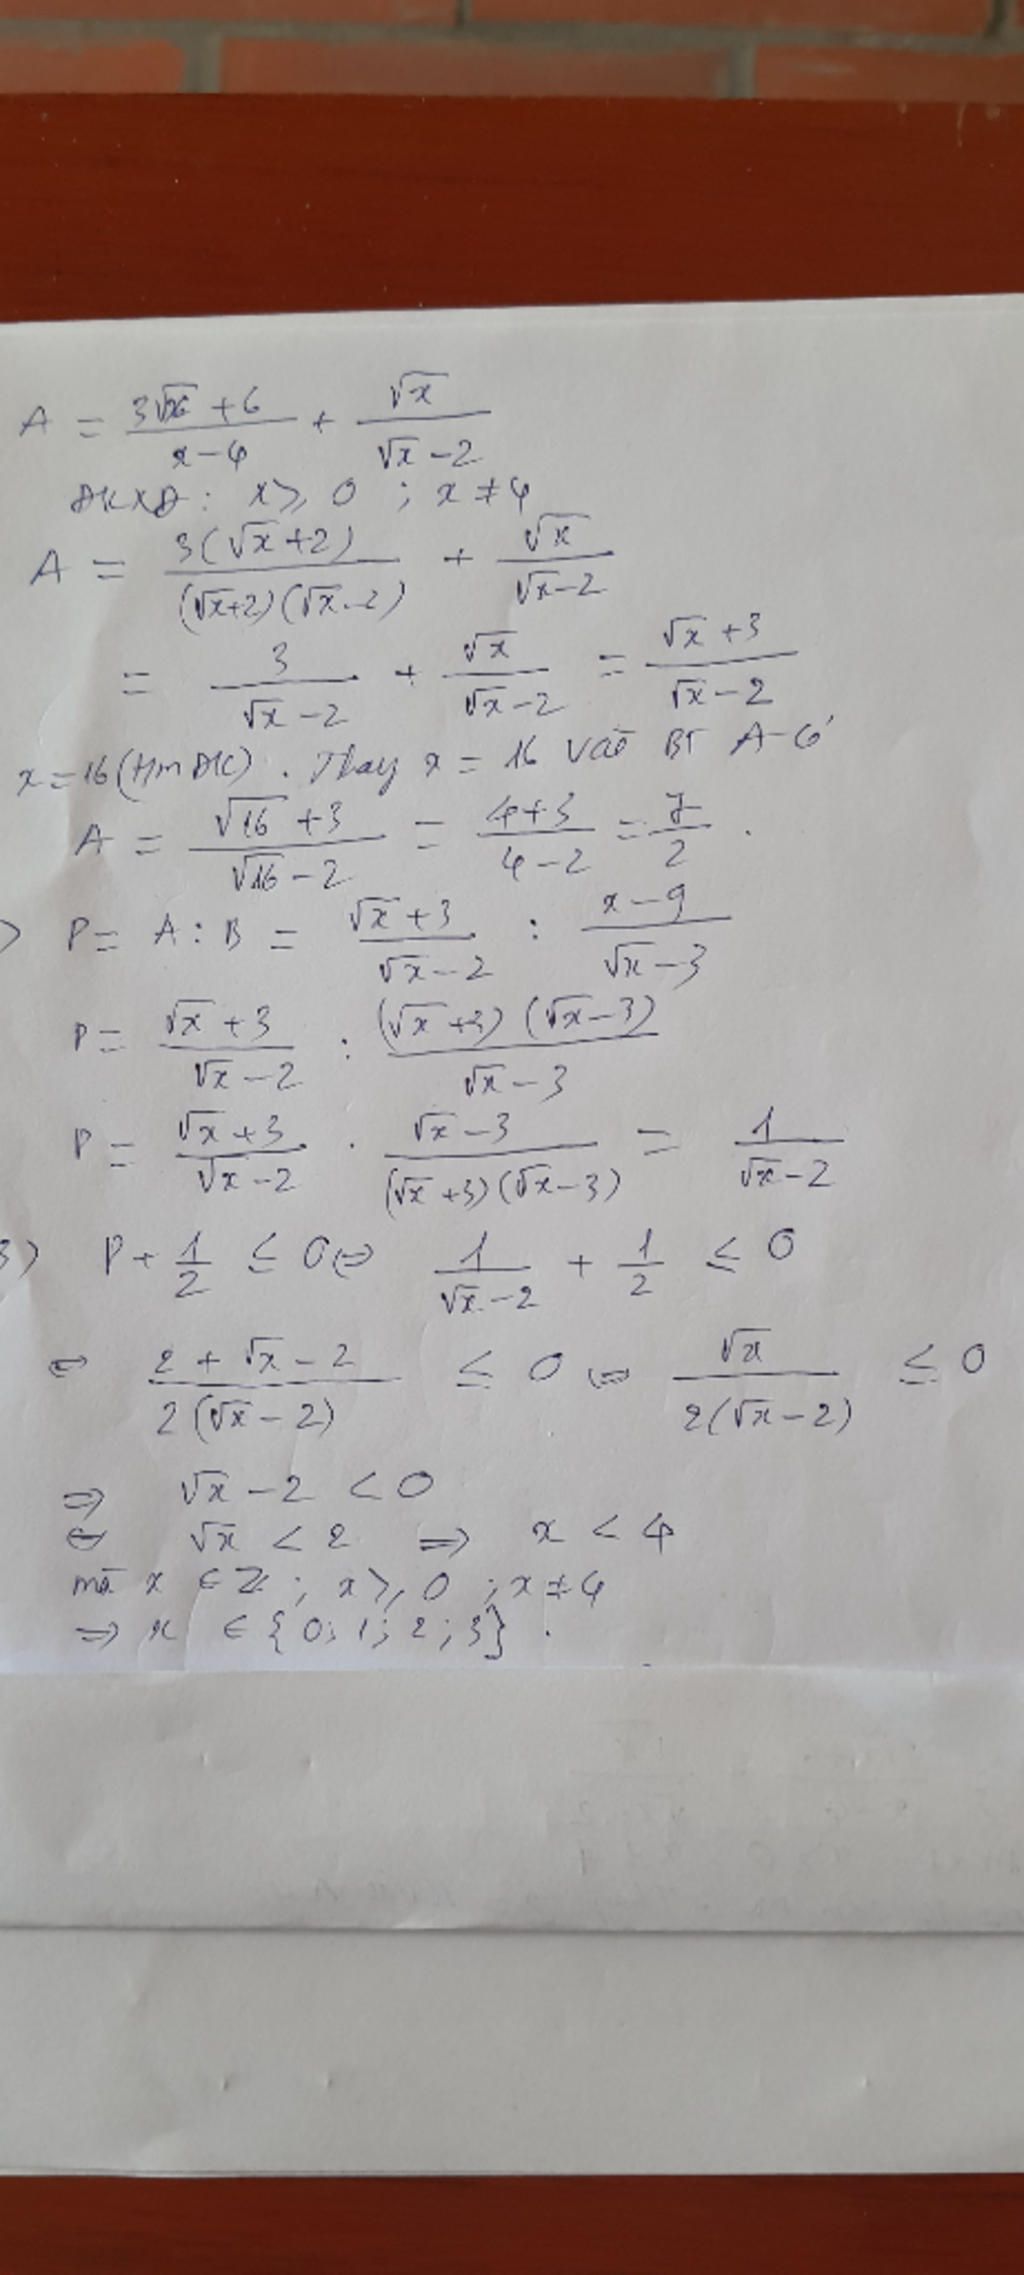 A = (3√x + 6)/(x - 4) + √x/(√x - 2)
ĐKXĐ: x ≥ 0 ; x ≠ 4
A = 3(√x + 2)/((√x+2)(√x-2)) + √x/(√x-2)
= 3/(√x - 2) + √x/(√x - 2) = (√x + 3)/(√x - 2)
x = 16 (tmĐK). Thay x = 16 vào BT A có
A = (√16 + 3)/(√16 - 2) = (4+3)/(4-2) = 7/2 .
) P = A : B = (√x + 3)/(√x - 2) : (x - 9)/(√x - 3)
P = (√x + 3)/(√x - 2) : ((√x + 3)(√x - 3))/(√x - 3)
P = (√x + 3)/(√x - 2) . (√x - 3)/((√x + 3)(√x - 3)) = 1/(√x - 2)
3) P + 1/2 ≤ 0 ⇔ 1/(√x - 2) + 1/2 ≤ 0
⇔ (2 + √x - 2)/(2(√x - 2)) ≤ 0 ⇔ √x/(2(√x - 2)) ≤ 0
⇒ √x - 2 < 0
⇔ √x < 2 ⇒ x < 4
mà x ∈ Z ; x ≥ 0 ; x ≠ 4
⇒ x ∈ {0; 1; 2; 3} .